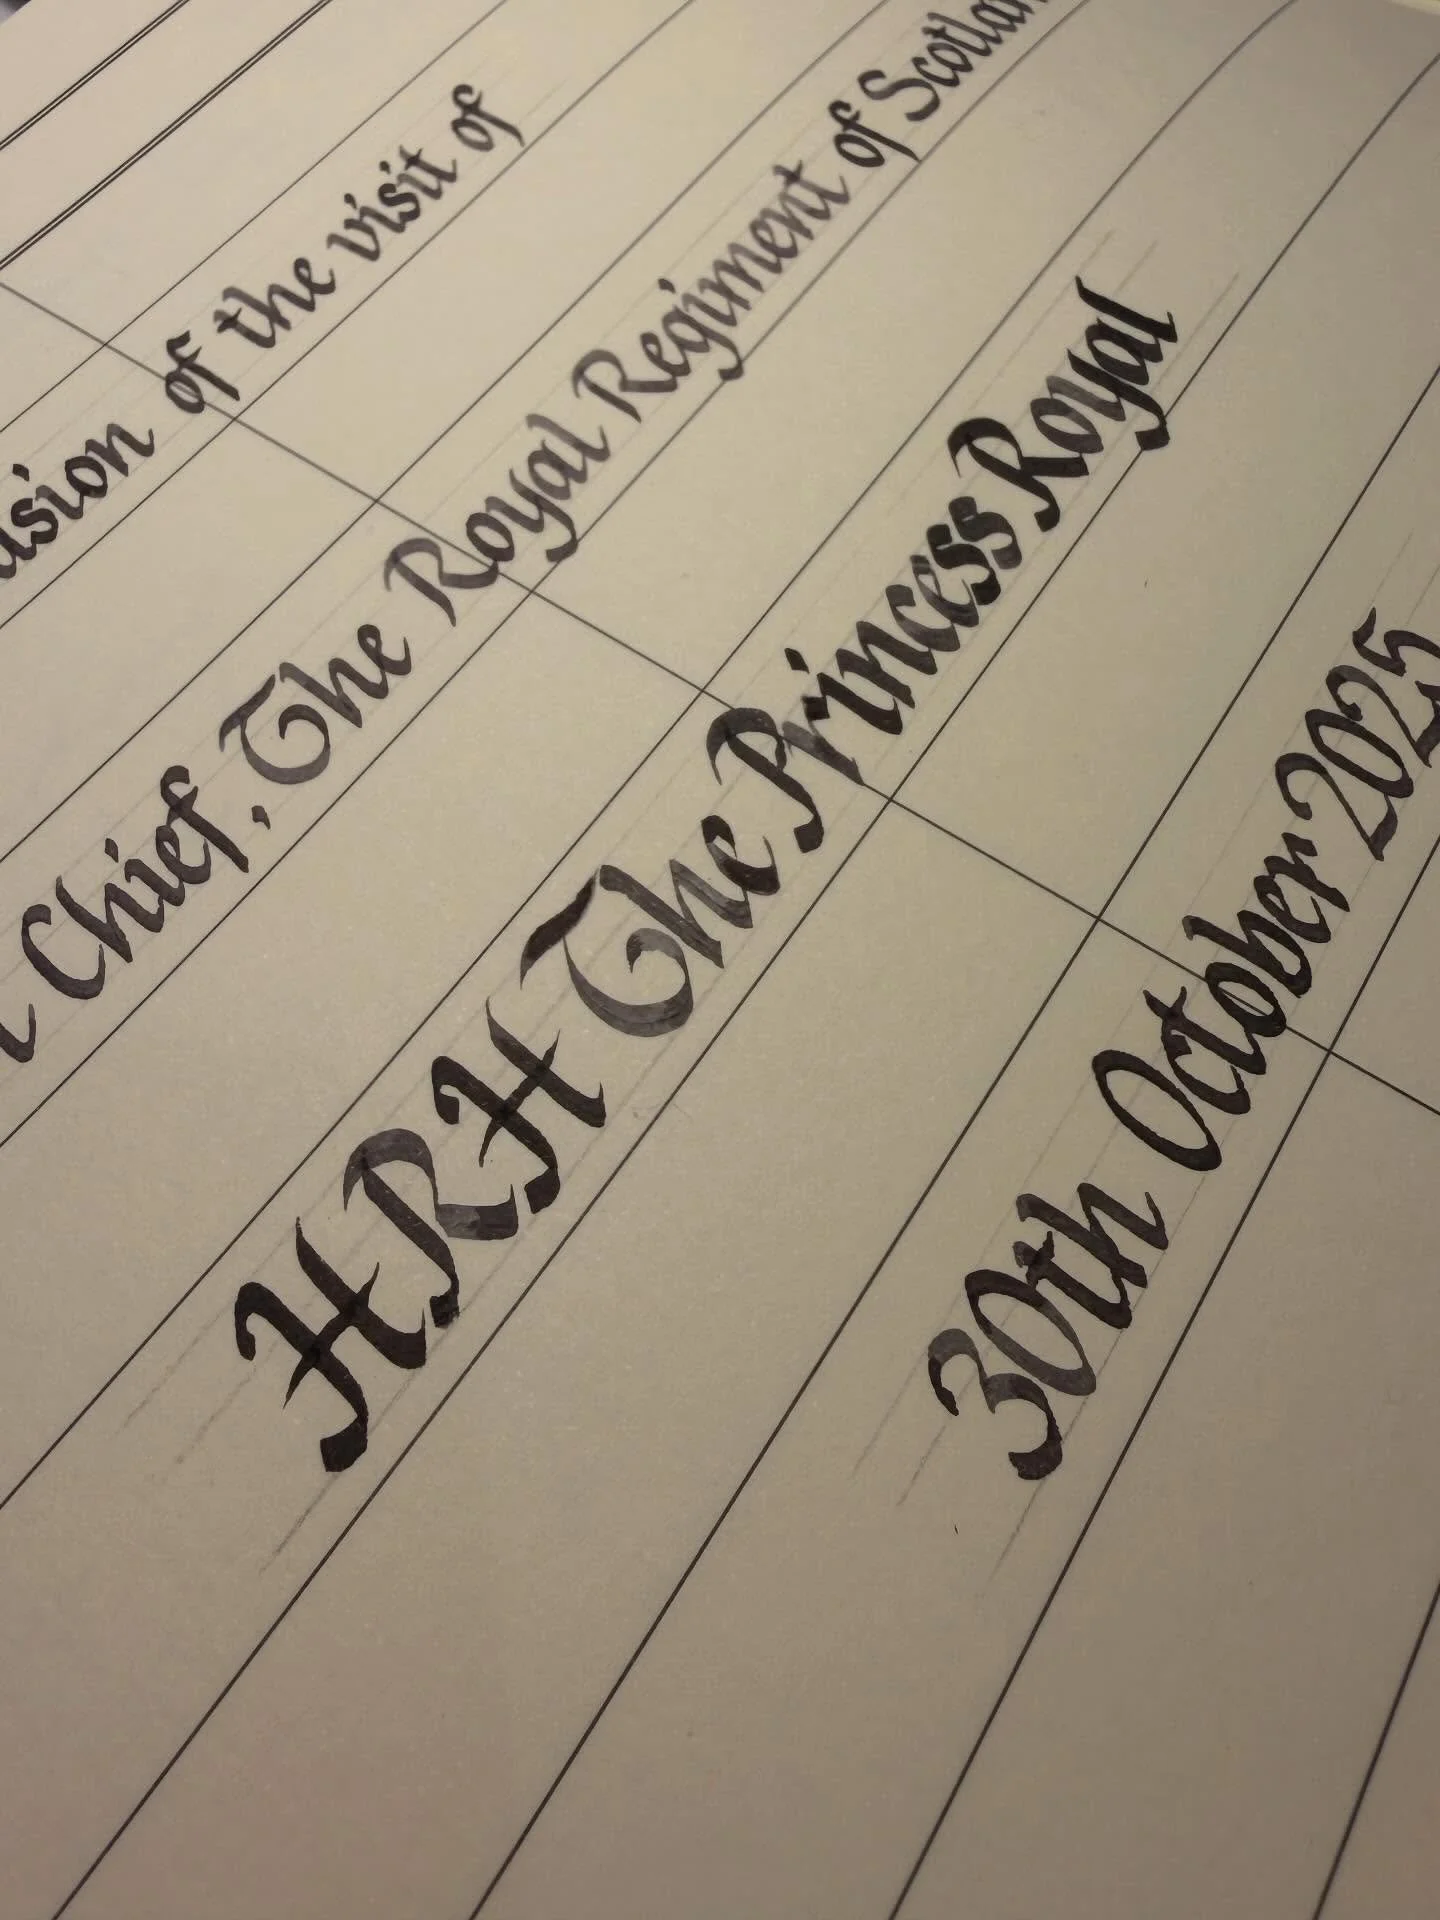 of the visit of
Chief, The Royal Regiment of
HRH The Princess Royal
30th October 2025